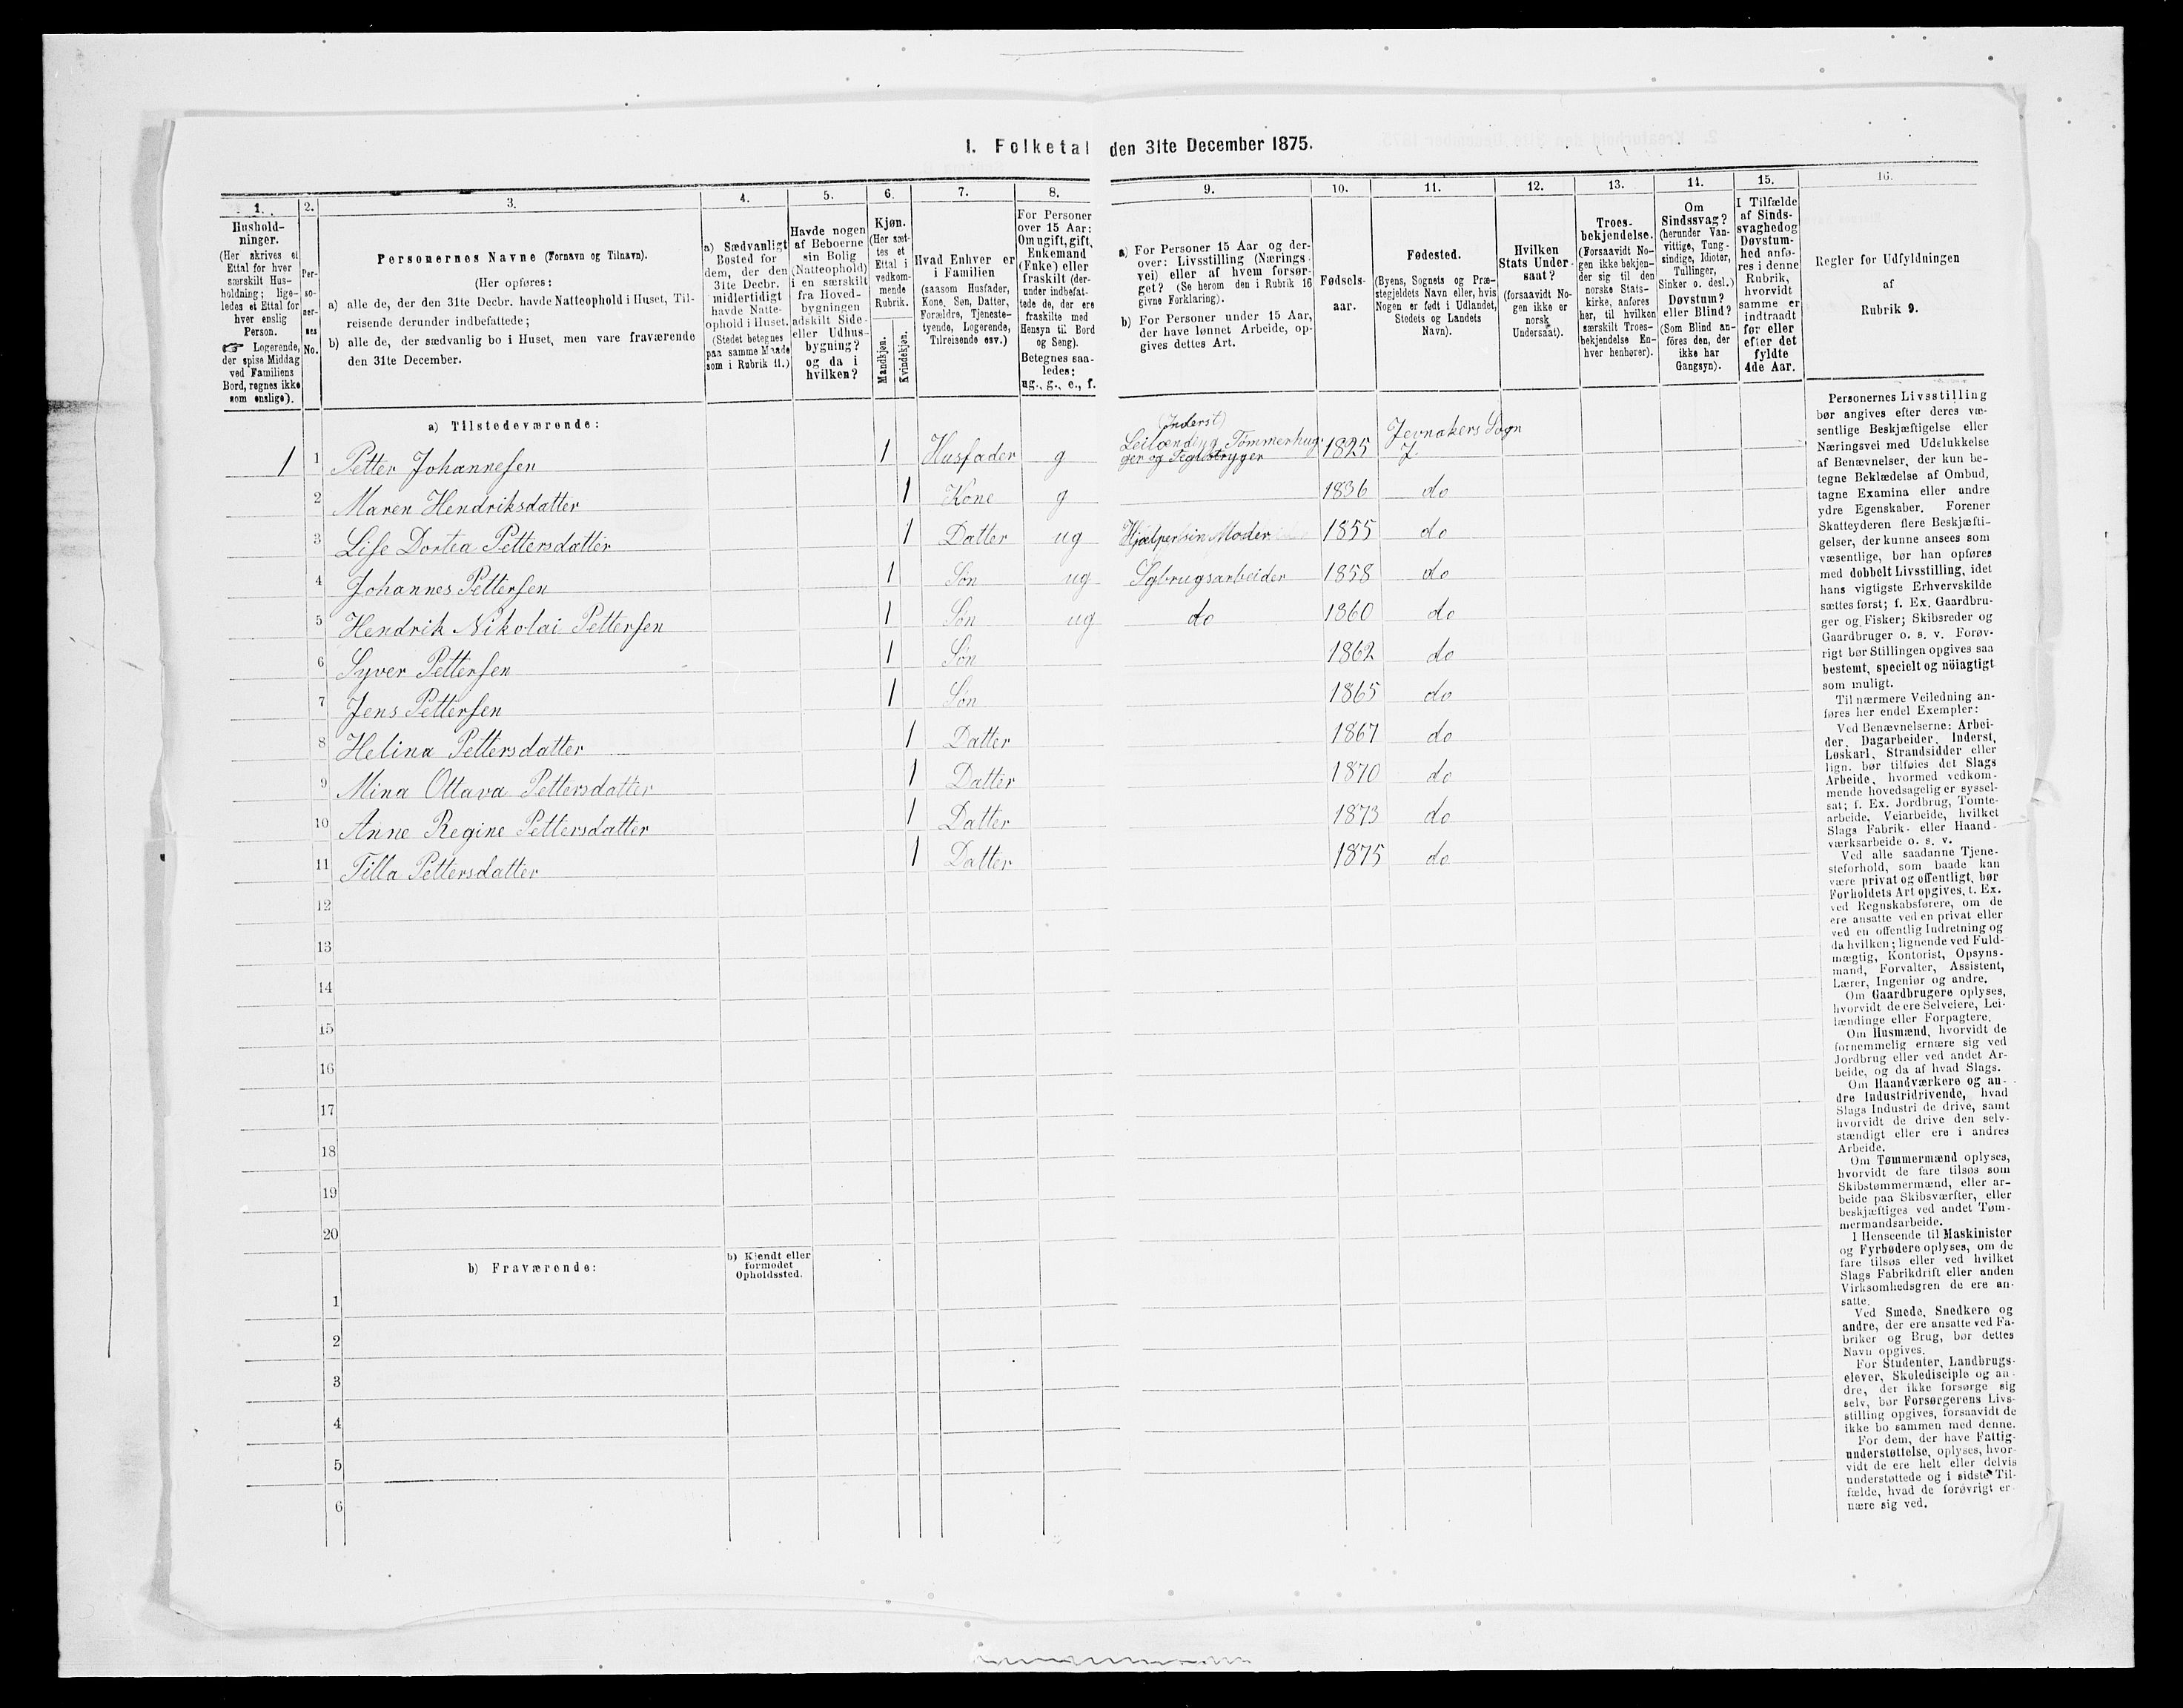 I. Folketal den 31te December 1875.
1. 2. 3. 4. 5. 6. 7. 8. 9. 10. 11. 12. 13. 14. 15. 16.
Hushold-
ninger.
(Her skrives et
Ettal for hver
særskilt Hus-
holdning; lige-
ledes et Ettal for
hver enslig
Person.
☞ Logerende,
der spise Middag
ved Familiens
Bord, regnes ikke
som enslige).
Per-
so-
ner-
nes
No.
Personernes Navne (Fornavn og Tilnavn).
(Her opføres:
a) alle de, der den 31te Decbr. havde Natteophold i Huset, Til-
reisende derunder indbefattede;
b) alle de, der sædvanlig bo i Huset, men vare fraværende
den 31te December.
a) Sædvanligt
Bosted for
dem, der den
31te Decbr.
midlertidigt
havde Natte-
ophold i Huset.
(Stedet betegnes
paa samme Maade
som i Rubrik 11.)
Havde nogen
af Beboerne
sin Bolig
(Natteophold)
i en særskilt
fra Hoved-
bygningen
adskilt Side-
eller Udhus-
bygning?
og da i
hvilken?
Kjøn.
(Her sæt-
tes et
Ettal i
vedkom-
mende
Rubrik.
Mandkjøn.
Kvindekjøn.
Hvad Enhver er
i Familien
(saasom Husfader,
Kone, Søn, Datter,
Forældre, Tjeneste-
tyende, Logerende,
Tilreisende osv.)
For Personer
over 15 Aar:
Om ugift, gift,
Enkemand
(Enke) eller
fraskilt (der-
under indbefat-
tede de, der ere
fraskilte med
Hensyn til Bord
og Seng).
Betegnes saa-
ledes:
ug., g., e., f.
a) For Personer 15 Aar og der-
over: Livsstilling (Nærings-
vei) eller af hvem forsør-
get? (Se herom den i Rubrik 16
givne Forklaring).
b) For Personer under 15 Aar,
der have lønnet Arbeide, op-
gives dettes Art.
Fødsels-
aar.
Fødested.
(Byens, Sognets og Præ-
stegjeldets Navn eller, hvis
Nogen er født i Udlandet,
Stedets og Landets
Navn).
Hvilken
Stats Under-
saat?
(forsaavidt No-
gen ikke er
norsk
Undersaat).
Troes-
bekjendelse.
(Forsaavidt No-
gen ikke bekjen-
der sig til den
norske Stats-
kirke, anføres
her, til hvilken
særskilt Troes-
bekjendelse En-
hver henhører).
Om
Sindssvag?
(herunder Van-
vittige, Tung-
sindige, Idioter,
Tullinger,
Sinker o. desl.)
Døvstum?
eller Blind?
(Som Blind an-
føres den, der
ikke har
Gangsyn).
I Tilfælde
af Sinds-
svaghed og
Døvstum-
hed anfø-
res i denne
Rubrik,
hvorvidt
samme er
indtraadt
før eller
efter det
fyldte
4de Aar.
Regler for Udfyldningen
af
Rubrik 9.
a) Tilstedeværende:
(Inderst)
1 1 Petter Johannesen 1 Husfader g Leilænding, Tømmerhug- 1825 Jevnakers Sogn
ger og Teglstryger
2 Maren Hendriksdatter 1 Kone g 1836 do
3 Lise Dortea Pettersdatter 1 Datter ug Hjælper sin Moder 1855 do
4 Johannes Pettersen 1 Søn ug Sgbrugsarbeider 1858 do
5 Hendrik Nikolai Pettersen 1 Søn ug do 1860 do
6 Syver Pettersen 1 Søn 1862 do
7 Jens Pettersen 1 Søn 1865 do
8 Helina Pettersdatter 1 Datter 1867 do
9 Mina Ottava Pettersdatter 1 Datter 1870 do
10 Anne Regine Pettersdatter 1 Datter 1873 do
11 Tilla Pettersdatter 1 Datter 1875 do
12
13
14
15
16
17
18
19
20
b) Fraværende:
b) Kjendt eller
formodet
Opholdssted.
1
2
3
4
5
6
Personernes Livsstilling
bør angives efter deres væ-
sentlige Beskjæftigelse eller
Næringsvei med Udelukkelse
af Benævnelser, der kun be-
tegne Beklædelse af Ombud,
tagne Examina eller andre
ydre Egenskaber. Forener
Skatteyderen flere Beskjæfti-
gelser, der kunne ansees som
væsentlige, bør han opføres
med dobbelt Livsstilling, idet
hans vigtigste Erhvervskilde
sættes først; f. Ex. Gaardbru-
ger og Fisker; Skibsreder og
Gaardbruger o. s. v. Forøv-
rigt bør Stillingen opgives saa
bestemt, specielt og nöiagtigt
som muligt.
Til nærmere Veiledning an-
føres her endel Exempler:
Ved Benævnelserne: Arbei-
der, Dagarbeider, Inderst,
Løskarl, Strandsidder eller
lign. bør tilføies det Slags
Arbeide, hvormed vedkom-
mende hovedsagelig er syssel-
sat; f. Ex. Jordbrug, Tomte-
arbeide, Veiarbeide, hvilket
Slags Fabrik- eller Haand-
værksarbeide o. s. v.
Ved alle saadanne Tjene-
steforhold, som baade kan
være privat og offentligt, bør
Forholdets Art opgives, t. Ex.
ved Regnskabsførere, om de
ere ansatte ved en privat eller
ved en offentlig Indretning og
da hvilken; lignende ved Fuld-
mægtig, Kontorist, Opsyns-
mand, Forvalter, Assistent,
Lærer, Ingeniør og andre.
Om Gaardbrugere oplyses,
hvorvidt de ere Selveiere, Lei-
lændinge eller Forpagtere.
Om Husmænd, hvorvidt de
fornemmelig ernære sig ved
Jordbrug eller ved andet Ar-
beide, og da af hvad Slags.
Om Haandværkere og an-
dre Industridrivende, hvad
Slags Industri de drive, samt
hvorvidt de drive den selv-
stændigt eller ere i andres
Arbeide.
Om Tømmermænd oplyses,
hvorvidt de fare tilsøs som
Skibstømmermænd, eller ar-
beide paa Skibsværfter, eller
beskjæftiges ved andet Tøm-
mermandsarbeide.
I Henseende til Maskinister
og Fyrbødere oplyses, om de
fare tilsøs eller ved hvilket
Slags Fabrikdrift eller anden
Virksomhedsgren de ere an-
satte.
Ved Smede, Snedkere og
andre, der ere ansatte ved Fa-
briker og Brug, bør dettes
Navn opgives.
For Studenter, Landbrugs-
elever, Skoledisciple og an-
dre, der ikke forsørge sig
selv, bør Forsørgerens Livs-
stilling opgives, forsaavidt de
ikke bo sammen med denne.
For dem, der have Fattig-
understøttelse, oplyses, hvor-
vidt de ere helt eller delvis
understøttede og i sidste Til-
fælde, hvad de forøvrigt er-
nære sig ved.